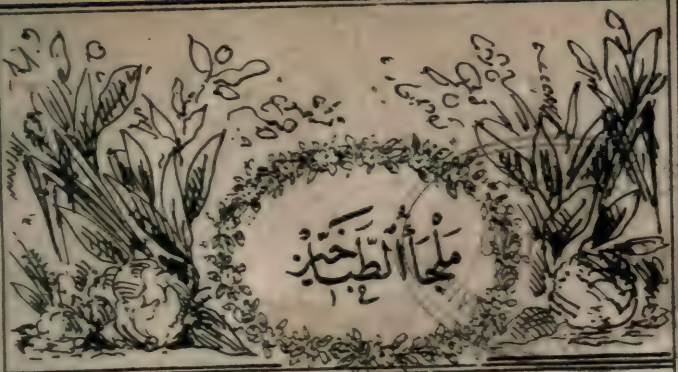 مَلْجَأُ الطَّبَّاخِيْن
١٤